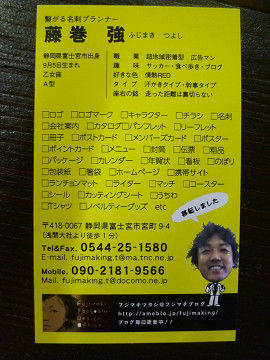 繋がる名刺プランナー
藤巻 強 ふじまき つよし
静岡県富士宮市出身
9月5日生まれ
乙女座
A型
職 業 超地域密着型 広告マン
趣 味 サッカー・食べ歩き・ブログ
好きな色 情熱RED
タ イ プ 汗かきタイプ・幹事タイプ
座右の銘 走った距離は裏切らない
□ロゴ □ロゴマーク □キャラクター □チラシ □名刺
□会社案内 □カタログ □パンフレット □リーフレット
□冊子 □ポストカード □メンバーズカード □ポスター
□ポイントカード □メニュー □封筒 □伝票 □粗品
□パッケージ □カレンダー □年賀状 □看板 □のぼり
□包装紙 □箸袋 □ホームページ □携帯サイト
□ランチョンマット □ライター □マッチ □コースター
□シール □カッティングシート □うちわ
□Tシャツ □ノベルティーグッズ etc
移転しました
〒418-0067 静岡県富士宮市宮町 9-4
(浅間大社より徒歩1分)
Tel&Fax. 0544-25-1580
E-mail. fujimaking.t@ma.tnc.ne.jp
Mobile. 090-2181-9566
Mail. fujimaking.t@docomo.ne.jp
フジマキツヨシ@フジマキブログ
http://ameblo.jp/fujimaking/
ブログ毎日更新中!!